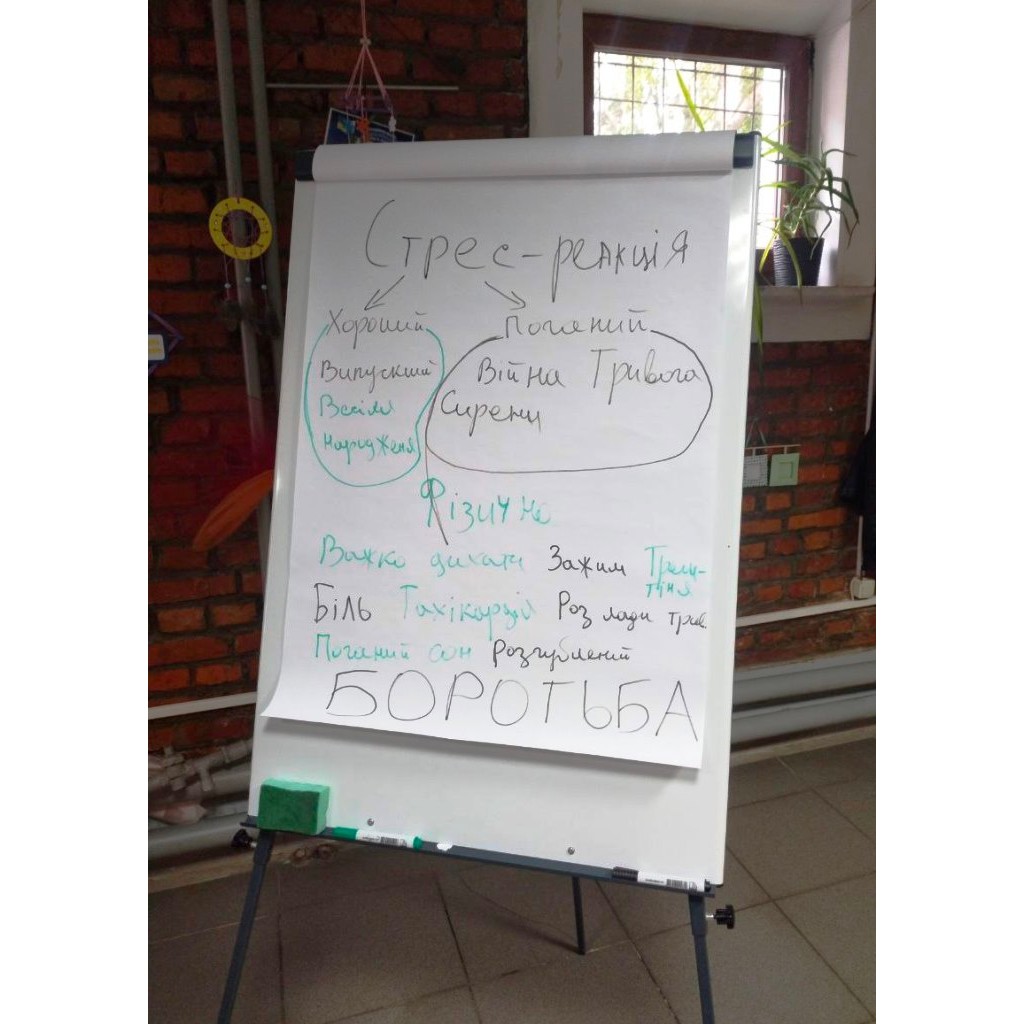 Стрес-реакція
Хороший Поганий
Випускний Війна Тривога
Весіля Сирени
Народженя
Фізично
Важко дихати Зажим Тремтіння
Біль Тахікардія Розлади трав.
Поганий сон Розгублений
БОРОТЬБА